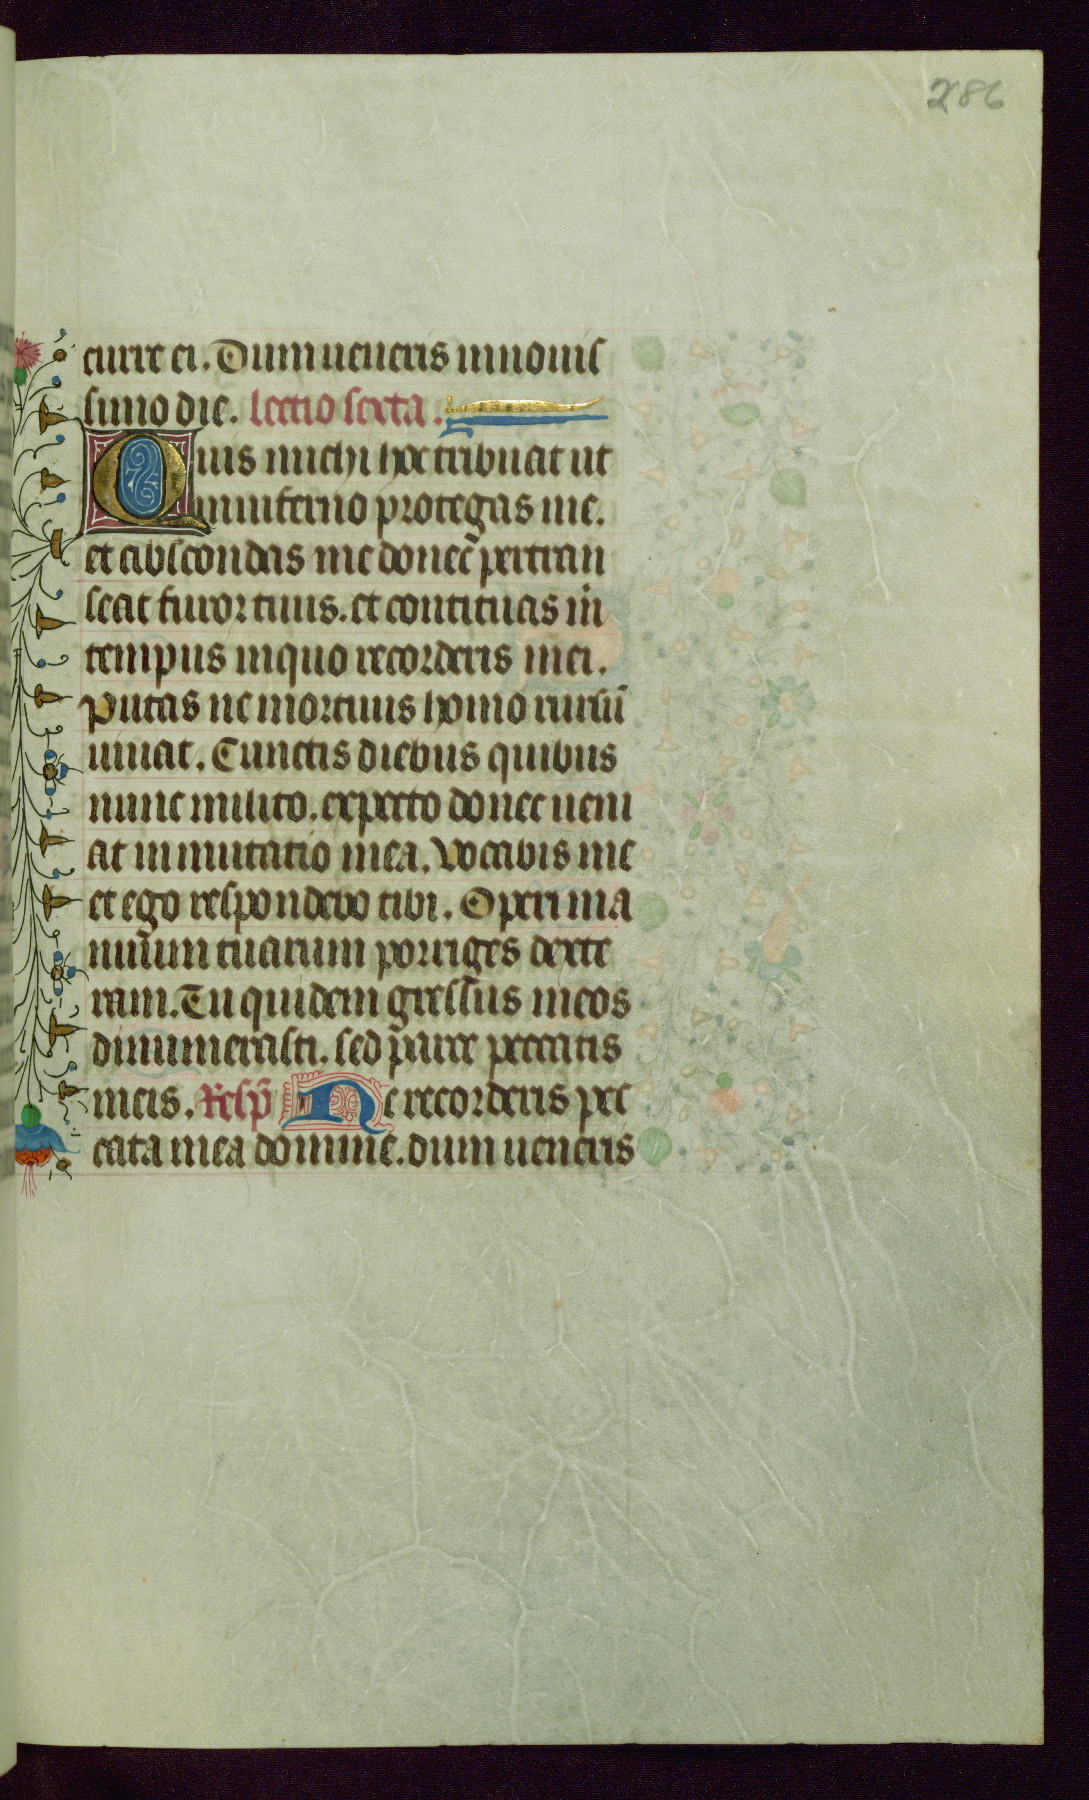 286
curre ei. Dum ueneris in nouis
simo die. Lectio sexta.
Quis michi hoc tribuat ut
in inferno protegas me.
et abscondas me donec̄ pertran
seat furor tuus. et contituas m̄
tempus in quo recorderis mei.
Putas ne mortuus homo rursū
uiuat. Cunctis diebus quibus
nunc milito. expecto donec ueni
at inmutatio mea. Vocabis me
et ego respondebo tibi. Operi ma
nuūm tuarum porriges dexte
ram. Tu quidem gressus meos
dinumerasti. sed p̄arce peccatis
meis. Resp̄ Ne recorderis pec
cata mea domine. dum ueneris